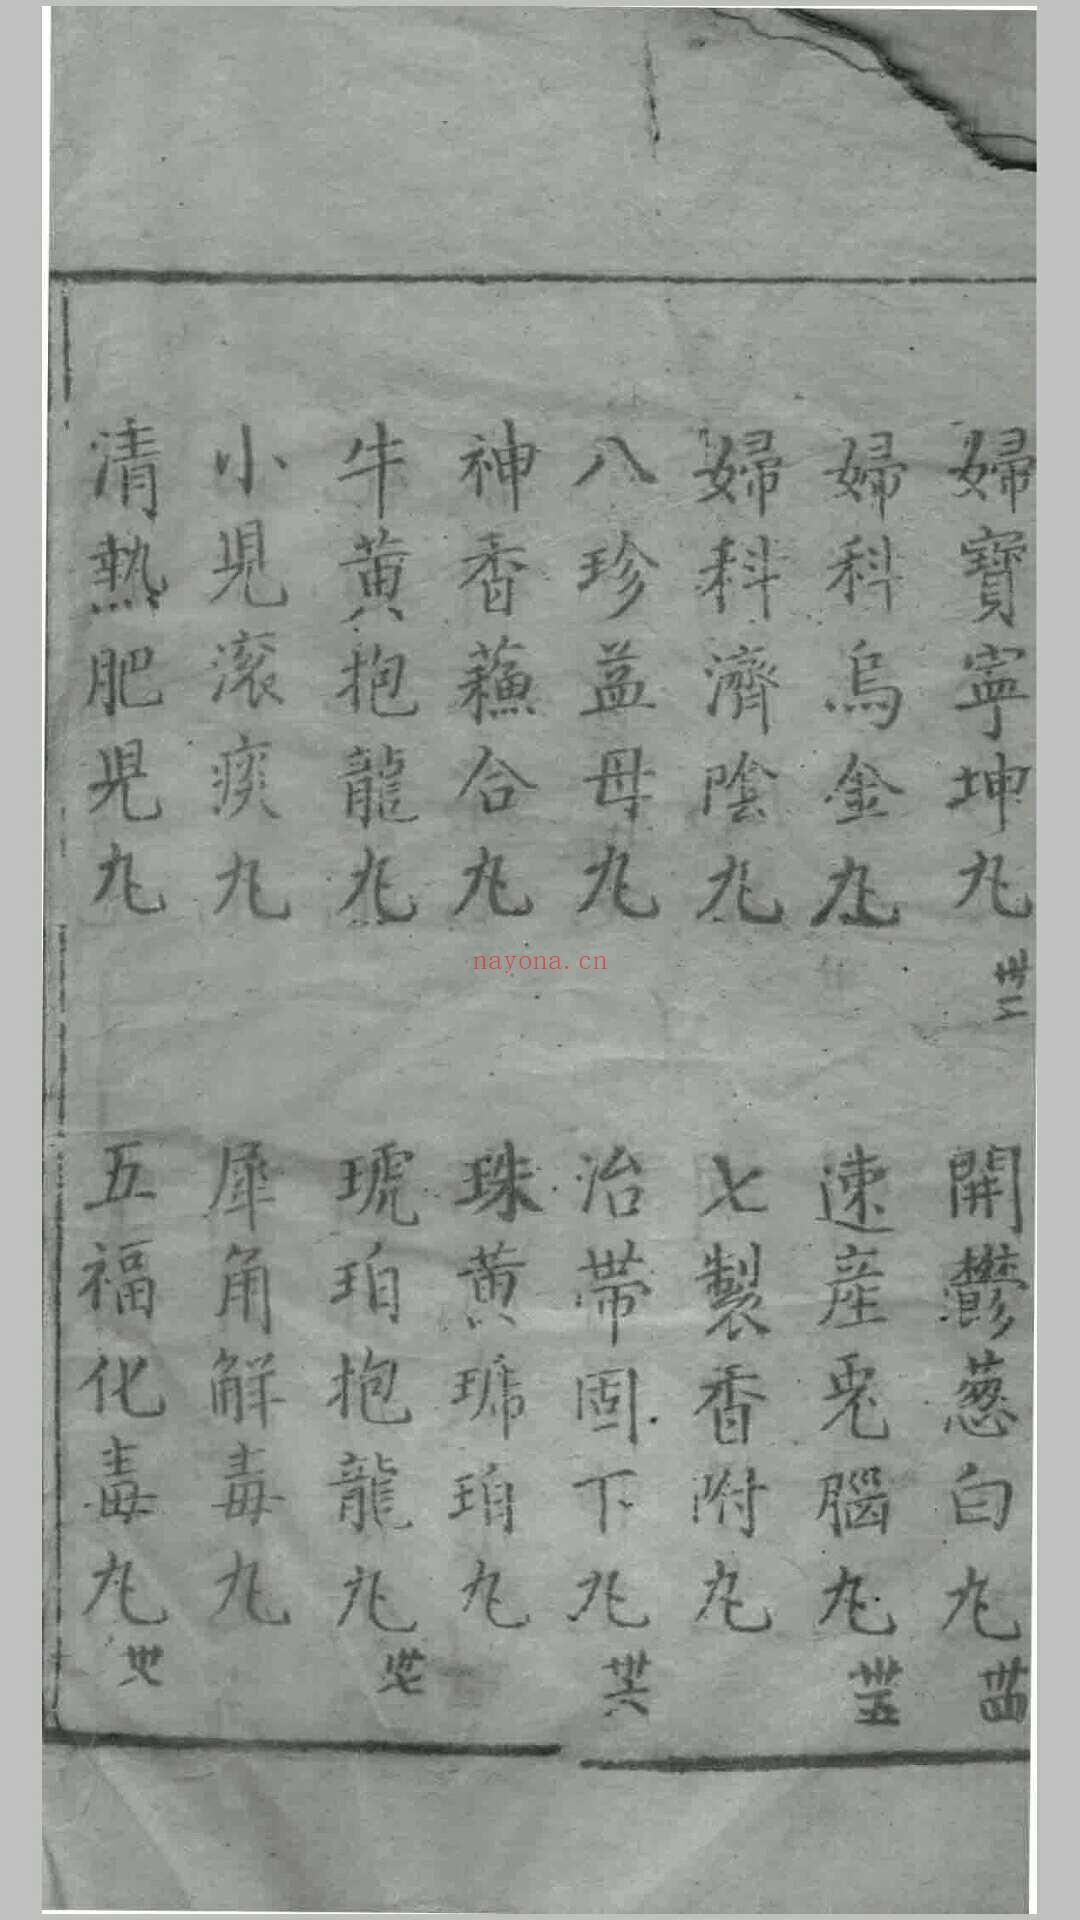 婦寶寧坤丸 卅二
開鬱葱白丸 卅四
婦科烏金丸
速産兎腦丸 卅五
婦科濟陰丸
七製香附丸
八珍益母丸
治帶固下丸 卅六
神香蘓合丸
珠黄琥珀丸
牛黄抱龍丸
琥珀抱龍丸 卅七
小児滚痰丸
犀角解毒丸
清熱肥児丸
五福化毒丸 卅八
nayona.cn